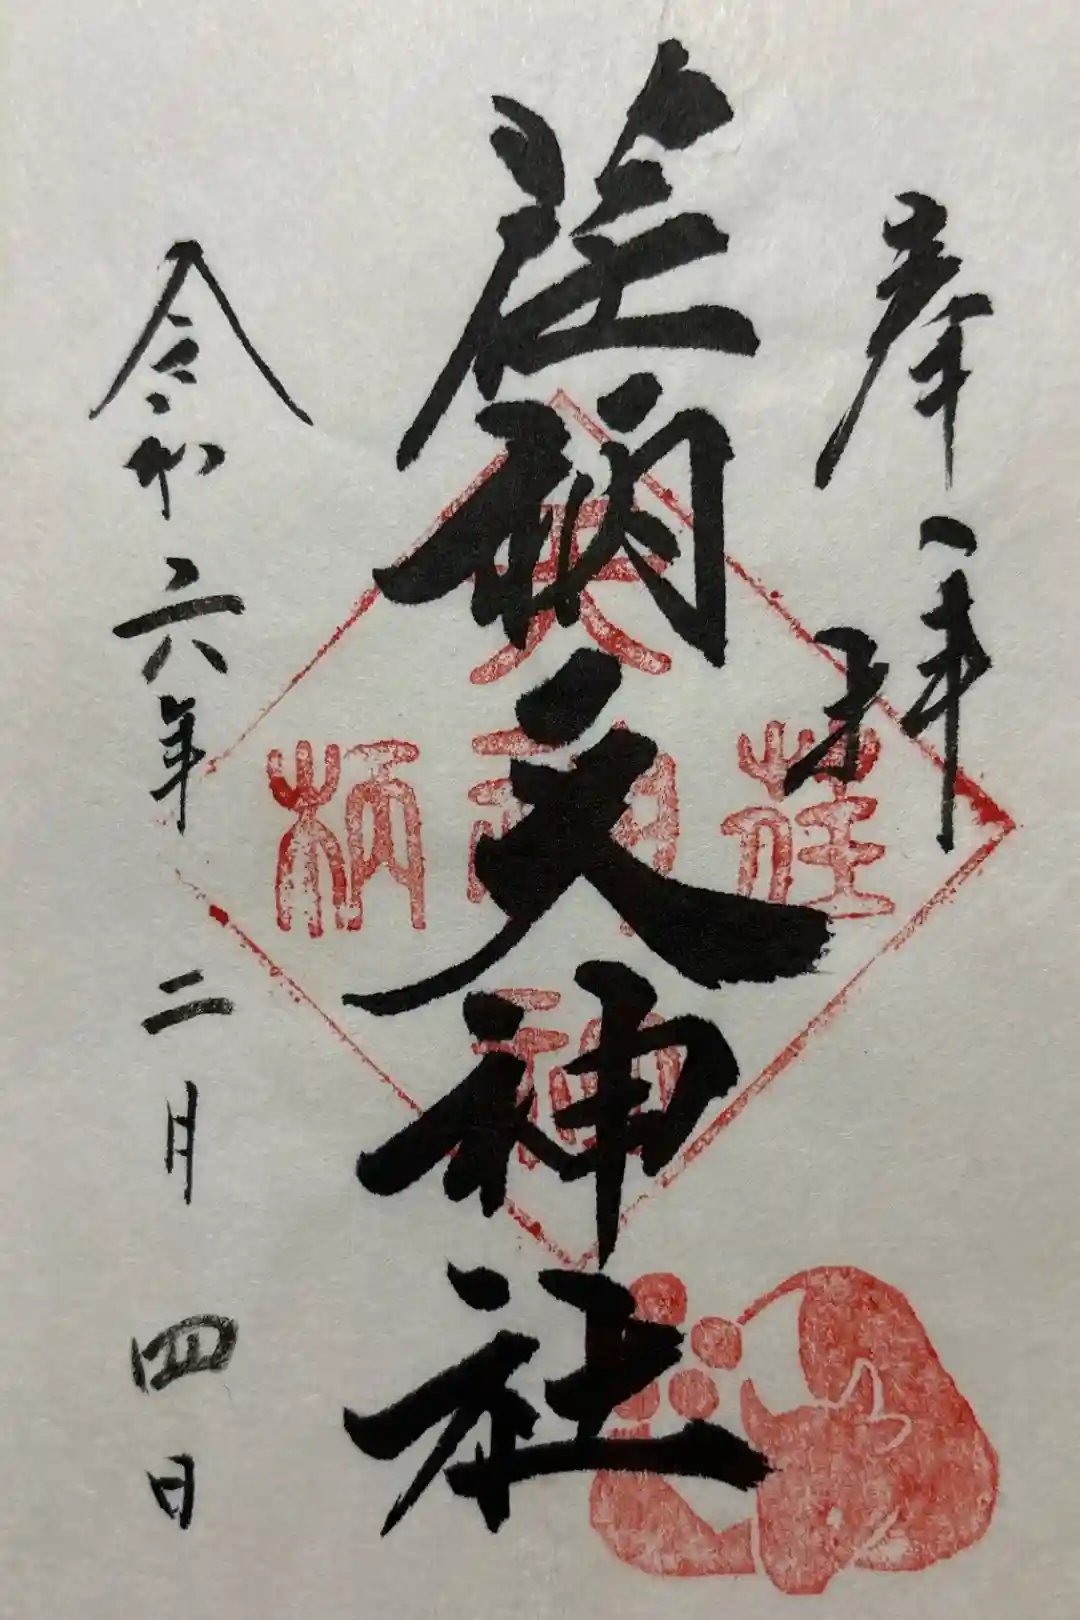 奉拝
荏柄天神社
令和六年二月四日
天
荏
柄
神